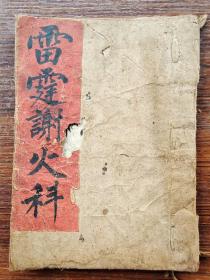 雷霆謝火科